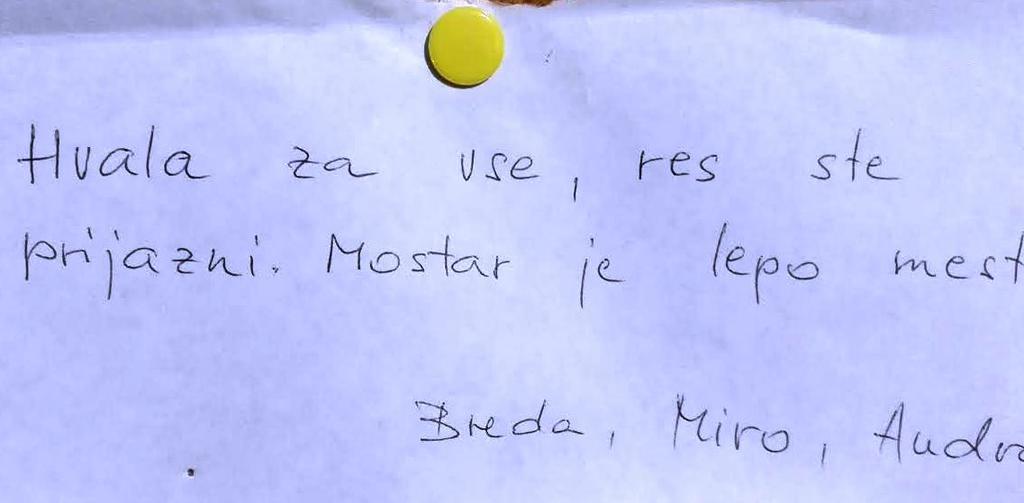 Hvala za vse, res ste
prijazni. Mostar je lepo mest
Breda, Miro,